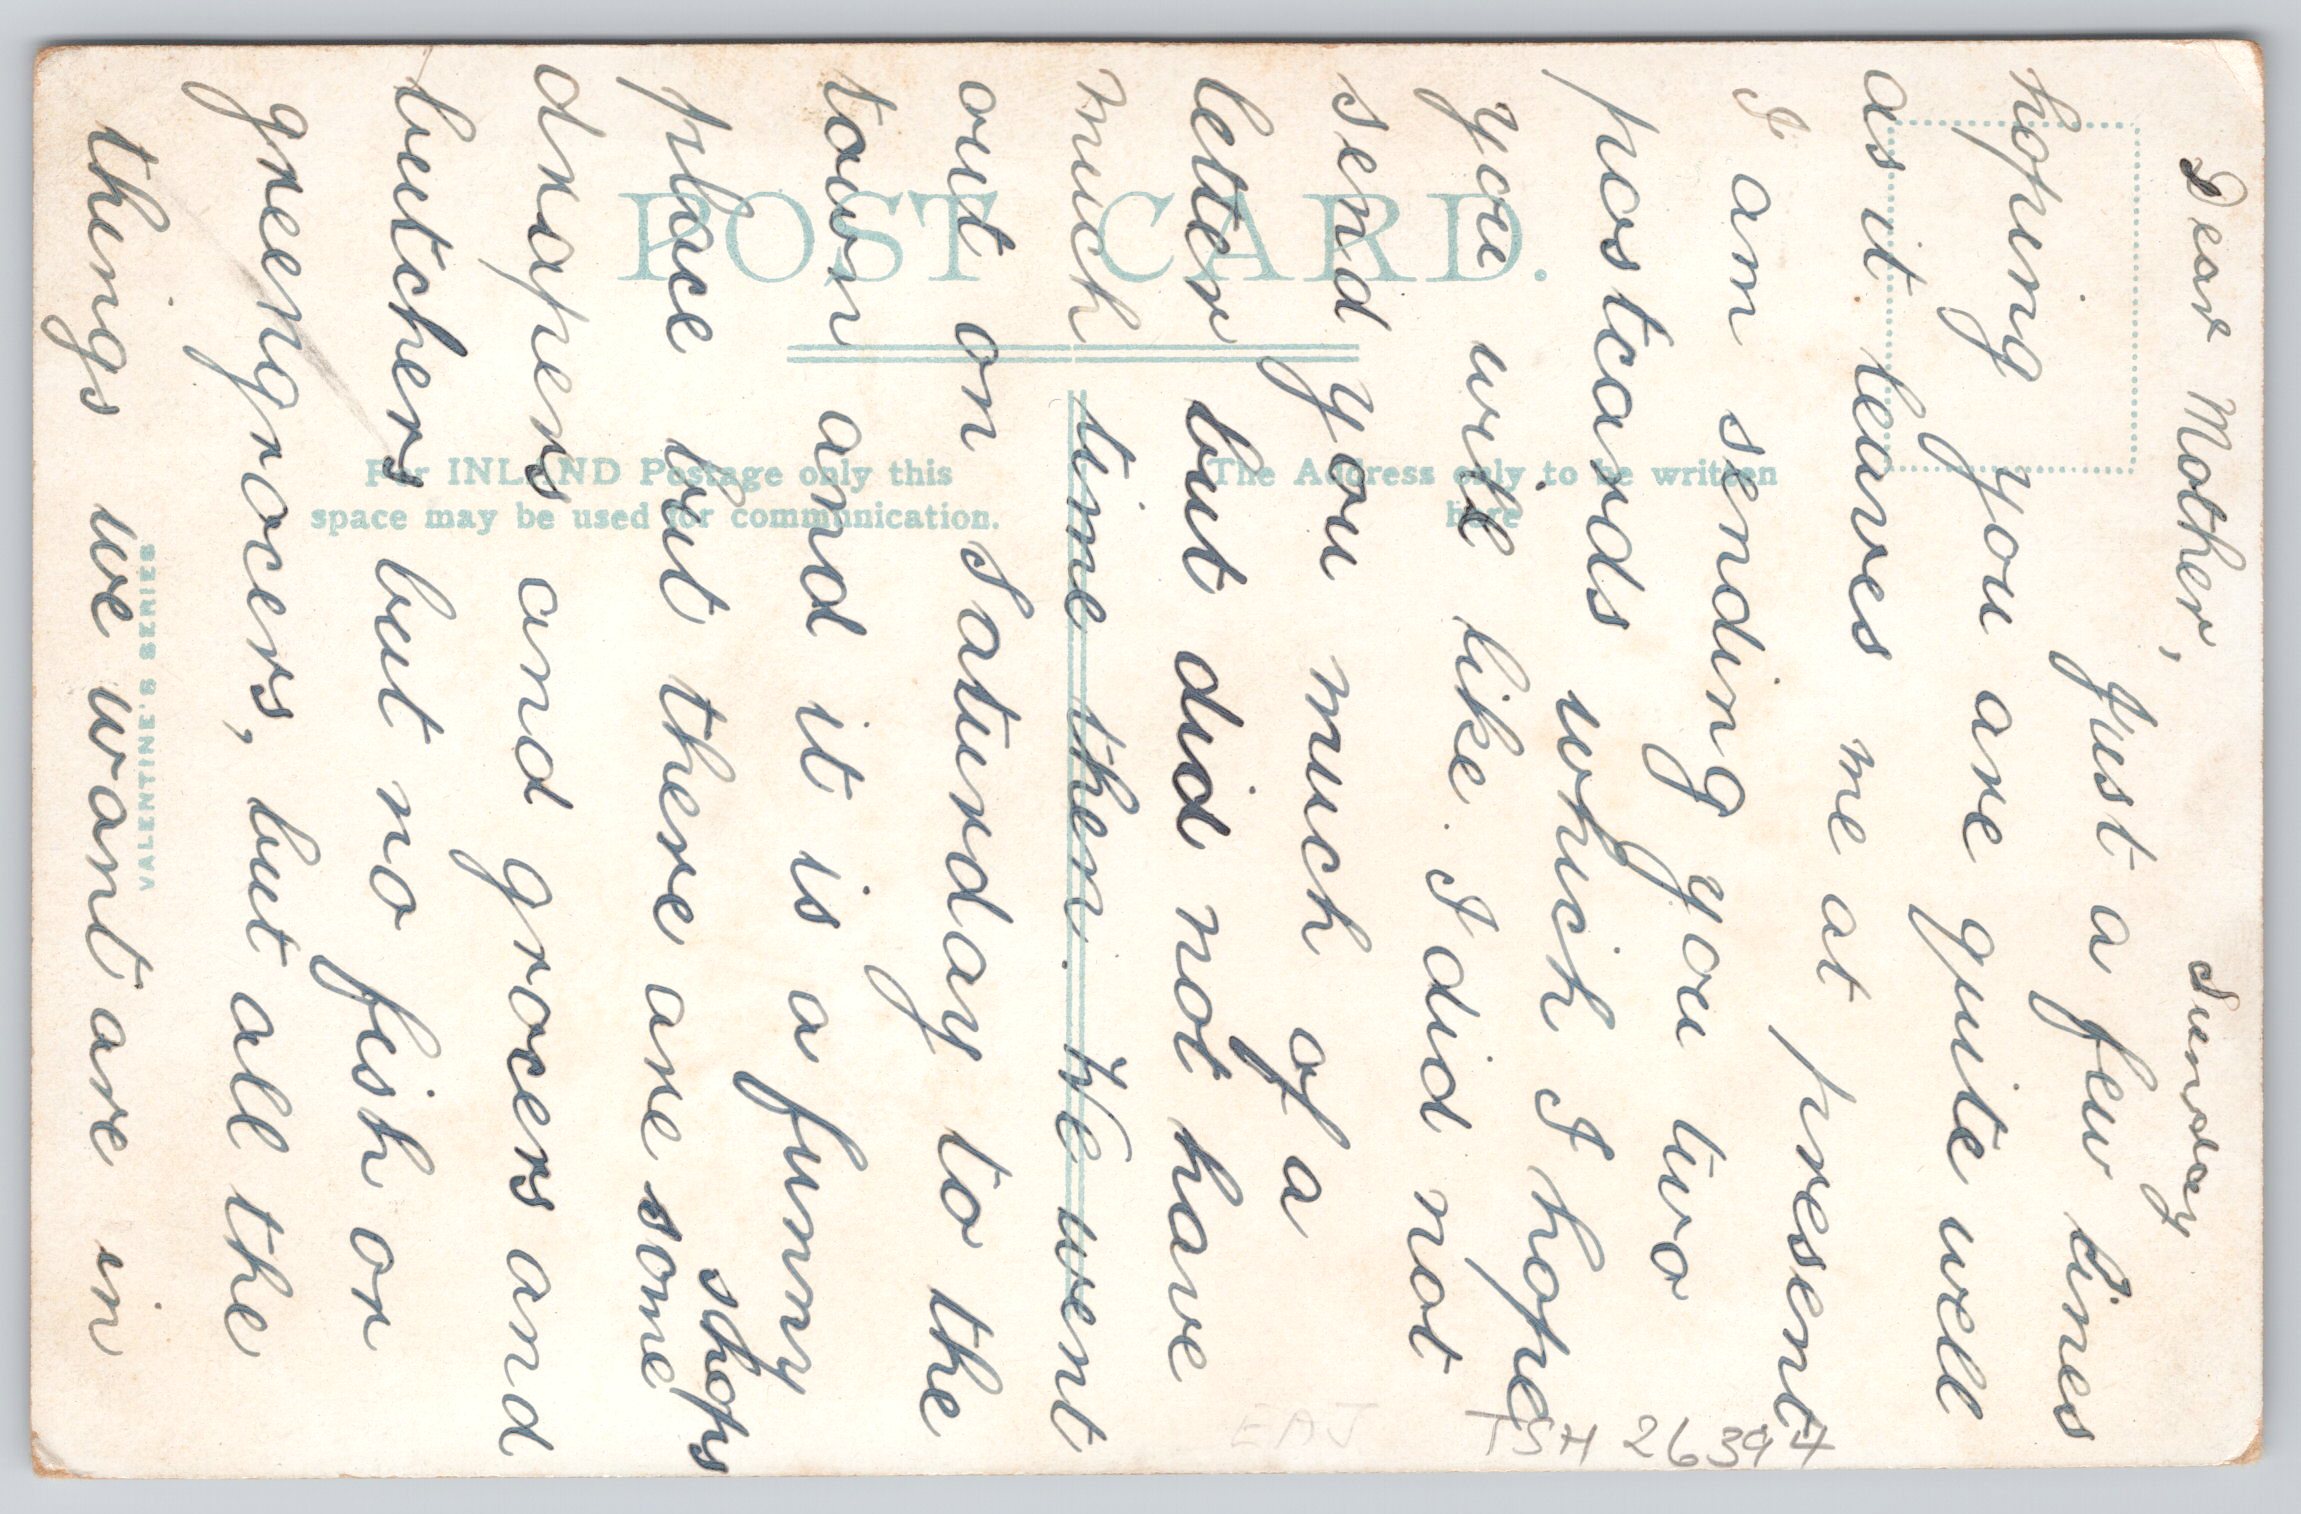 Dear Mother, Sunday
Just a few lines
hoping you are quite well
as it leaves me at present
I am sending you two
postcards which I hope
you will like. I did not
send you much of a
letter but did not have
much time then. We went
out on Saturday to the
town and it is a funny
place but there are some shops
drapers and grocers and
butchers but no fish or
greengrocers, but all the
things we want are in
POST CARD.
For INLAND Postage only this
space may be used for communication.
The Address only to be written
here
VALENTINE'S SERIES
EAJ
TSH 26397